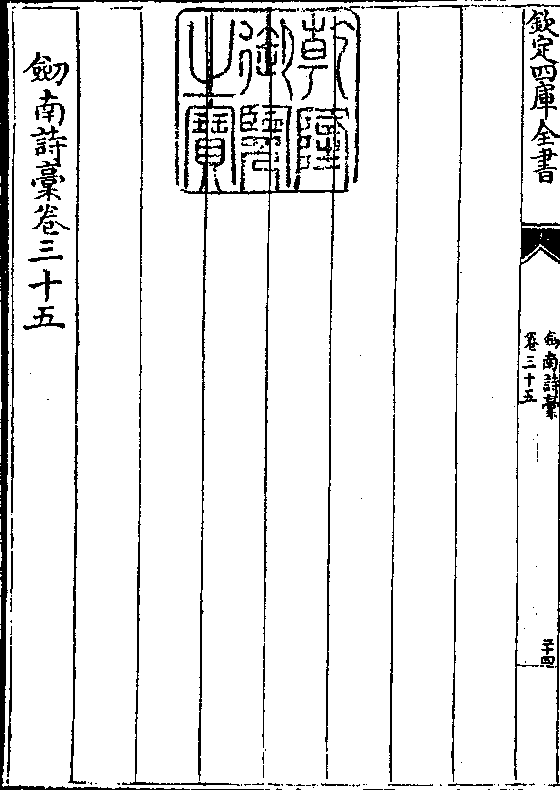 欽定四庫全書
劒南詩藁
卷三十五
二十四
乾隆
御覽
之寳
劒南詩藁卷三十五